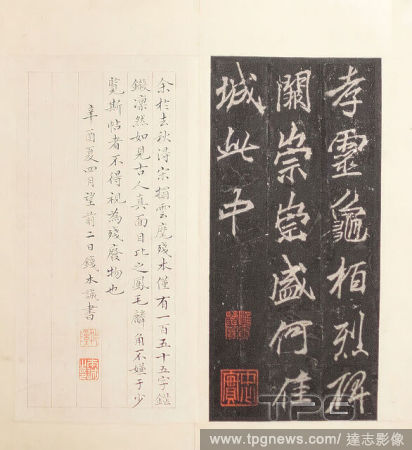 孝靈龜柏烈碑
關崇崇盛何佳
城此中
余於去秋得宋搨雲麾殘本僅有一百五十五字
凛然如見古人真面目比之鳳毛麟角不嫌于少
覽斯帖者不得視為殘廢物也
辛酉夏四月望前二日水識書
TPG
www.tpgnews.com / 達志影像